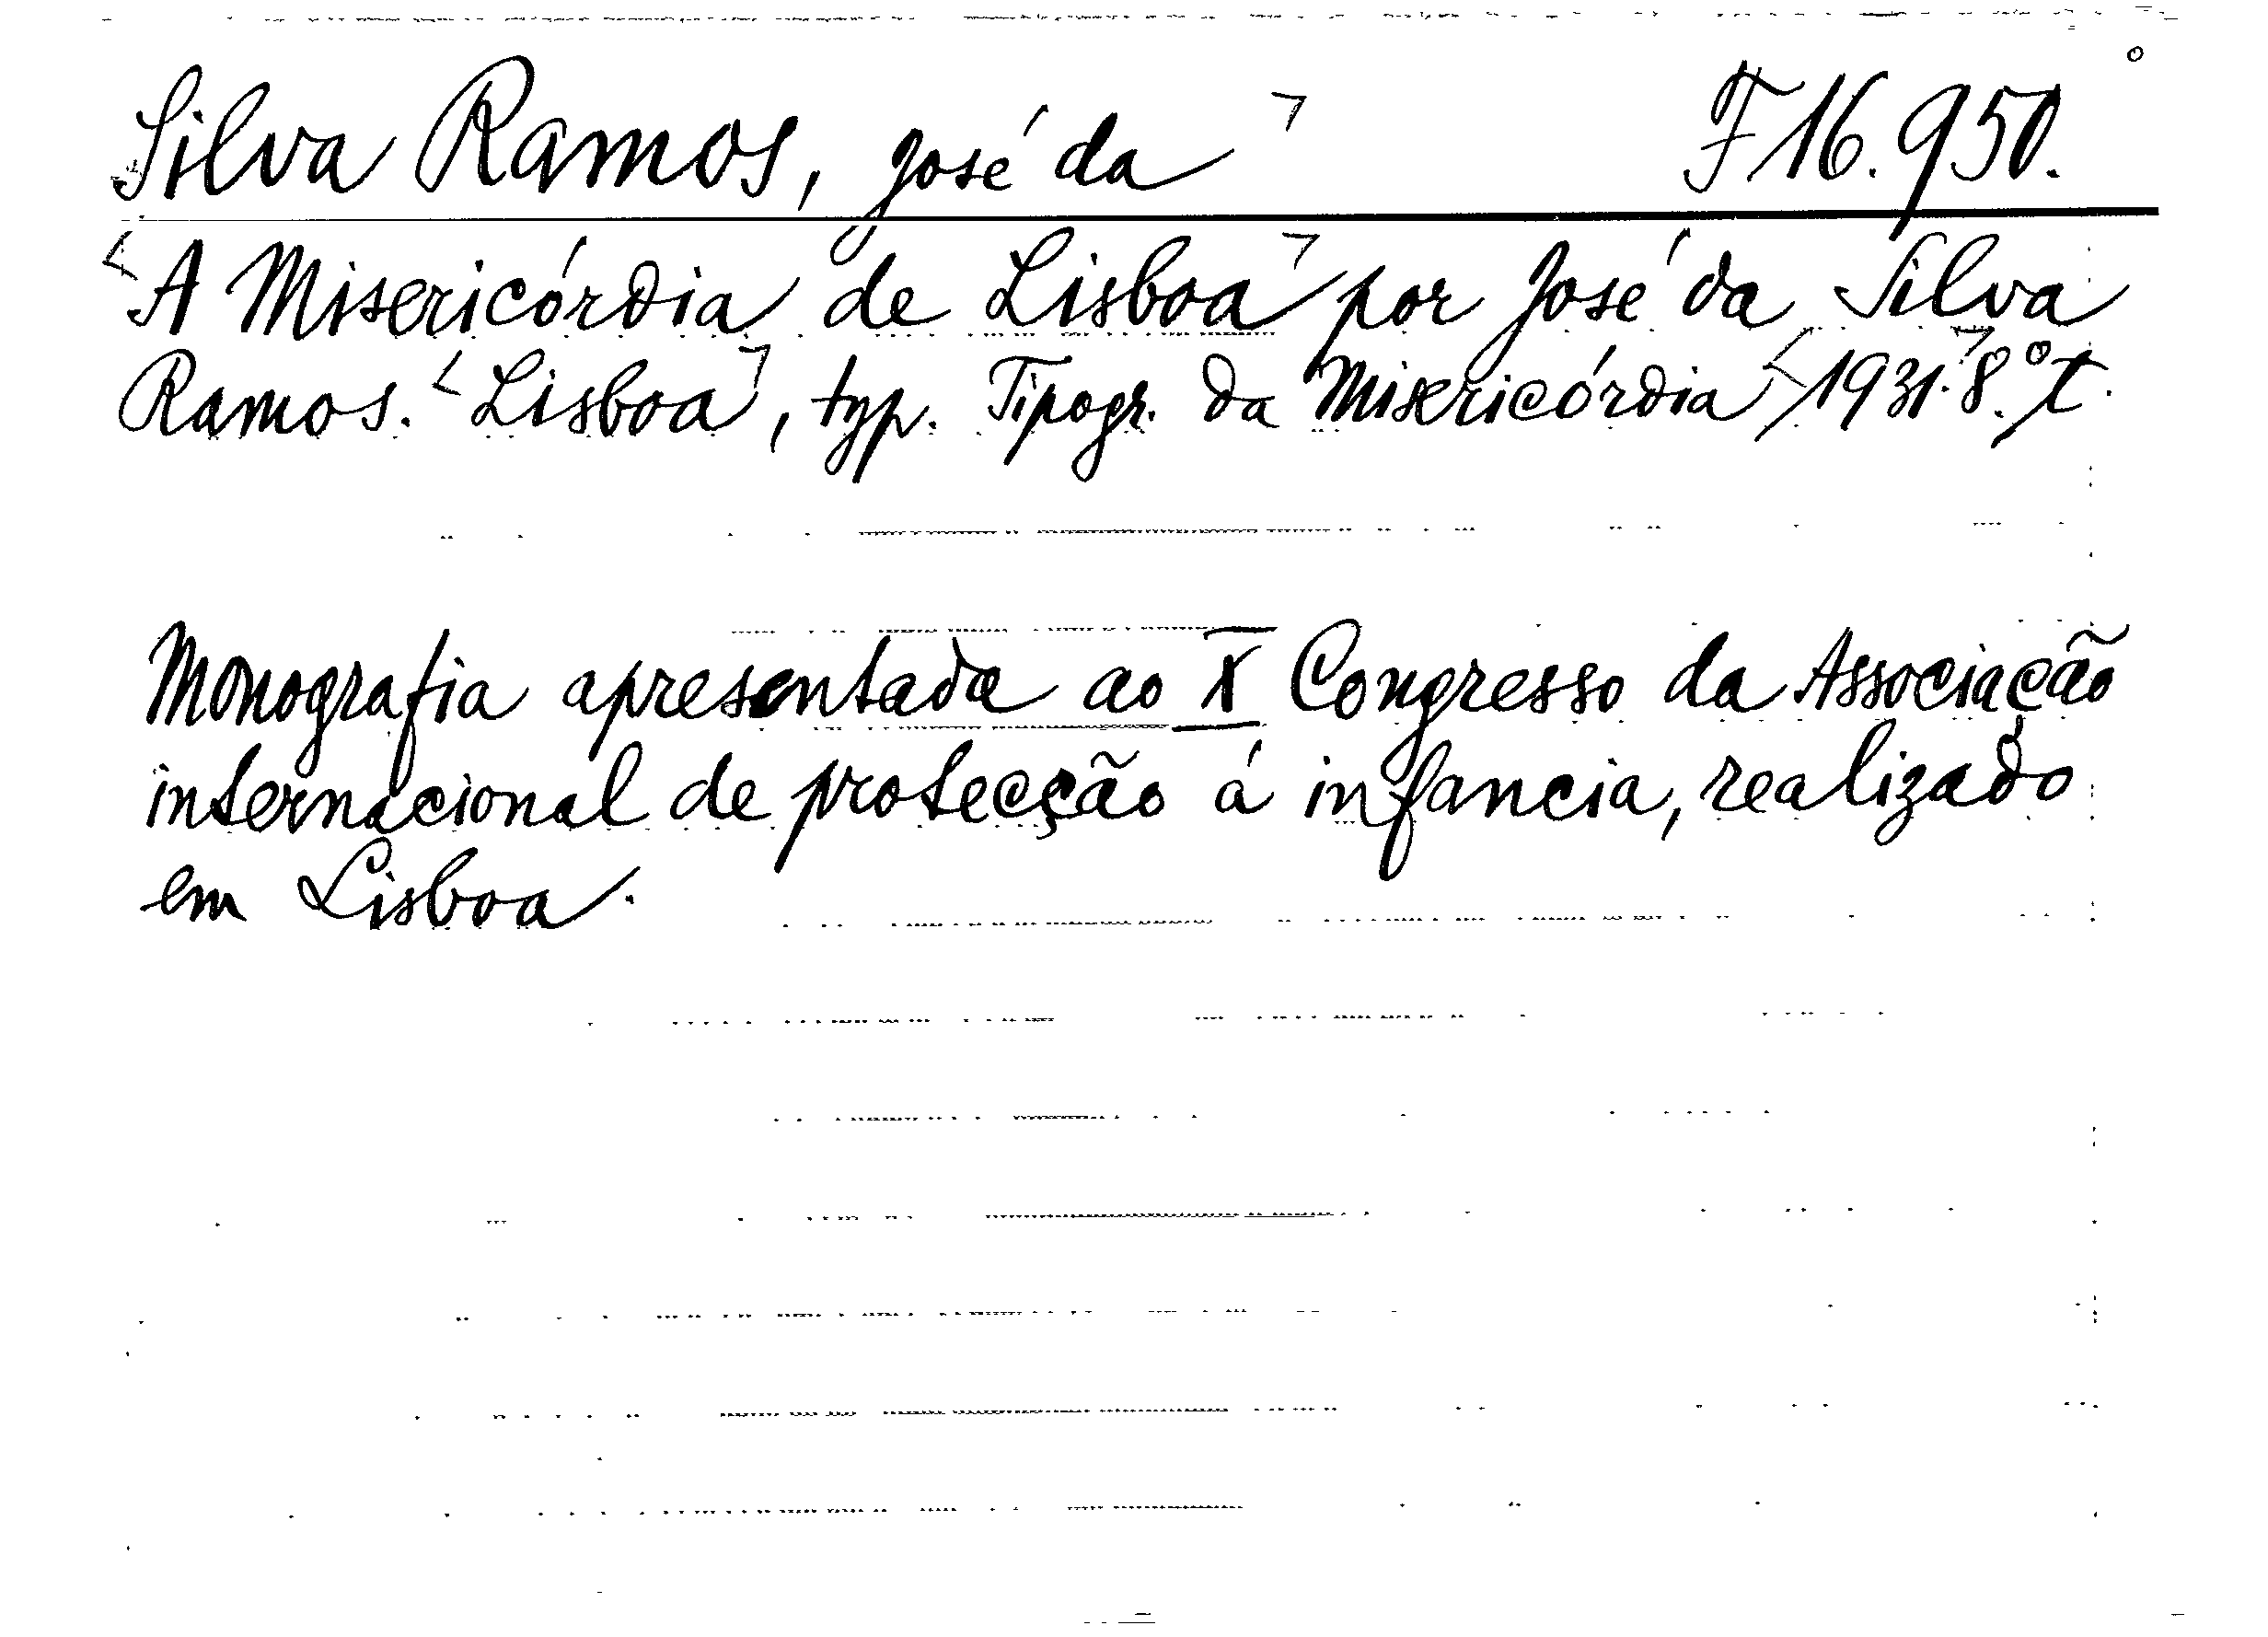 Silva Ramos, José da F 16.950.
A Misericórdia de Lisboa por José da Silva
Ramos. Lisboa, typ. Tipogr. da Misericórdia 1931. 8.º t.
Monografia apresentada ao X Congresso da Associação
internacional de protecção á infancia, realizado
em Lisboa.